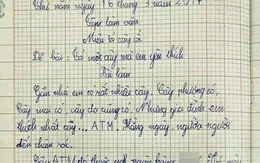 Thứ năm ngày 16 tháng 3 năm 2017
Tập làm văn
Miêu tả cây cối
Đề bài: Tả một cây mà em yêu thích
Bài làm
Gần nhà em có rất nhiều cây. Cây phượng có,
cây mai có, cây đa cũng có. Nhưng gia đình em
thích nhất cây... ATM. Hằng ngày, người người
đến chăm sóc.
Cây ATM do thuộc ngân hàng